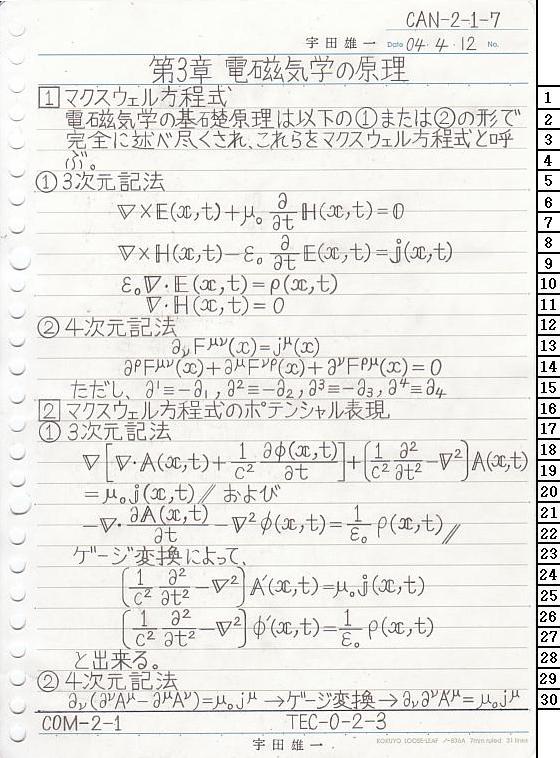 CAN-2-1-7
宇田雄一 Date 04・4・12 No.
第3章 電磁気学の原理
1 マクスウェル方程式
電磁気学の基礎原理は以下の①または②の形で
完全に述べ尽くされ、これらをマクスウェル方程式と呼
ぶ。
①3次元記法
∇×𝔼(𝕩,t)+μ₀ ∂/∂t ℍ(𝕩,t)=𝟘
∇×ℍ(𝕩,t)−ε₀ ∂/∂t 𝔼(𝕩,t)=𝕛(𝕩,t)
ε₀∇·𝔼(𝕩,t)=ρ(𝕩,t)
∇·ℍ(𝕩,t)=0
②4次元記法
∂νF^μν(x)=j^μ(x)
∂^ρF^μν(x)+∂^μF^νρ(x)+∂^νF^ρμ(x)=0
ただし、∂¹≡−∂₁, ∂²≡−∂₂, ∂³≡−∂₃, ∂⁴≡∂₄
2 マクスウェル方程式のポテンシャル表現
①3次元記法
∇[∇·𝔸(𝕩,t)+1/c² ∂φ(𝕩,t)/∂t]+(1/c² ∂²/∂t²−∇²)𝔸(𝕩,t)
=μ₀𝕛(𝕩,t)// および
−∇·∂𝔸(𝕩,t)/∂t−∇²φ(𝕩,t)=1/ε₀ ρ(𝕩,t)//
ゲージ変換によって、
(1/c² ∂²/∂t²−∇²)𝔸′(𝕩,t)=μ₀𝕛(𝕩,t)
(1/c² ∂²/∂t²−∇²)φ′(𝕩,t)=1/ε₀ ρ(𝕩,t)
と出来る。
②4次元記法
∂ν(∂^νA^μ−∂^μA^ν)=μ₀j^μ→ゲージ変換→∂ν∂^νA^μ=μ₀j^μ
COM-2-1 TEC-0-2-3
宇田雄一
KOKUYO LOOSE-LEAF ノ-836A 7mm ruled 31 lines
1
2
3
4
5
6
7
8
9
10
11
12
13
14
15
16
17
18
19
20
21
22
23
24
25
26
27
28
29
30